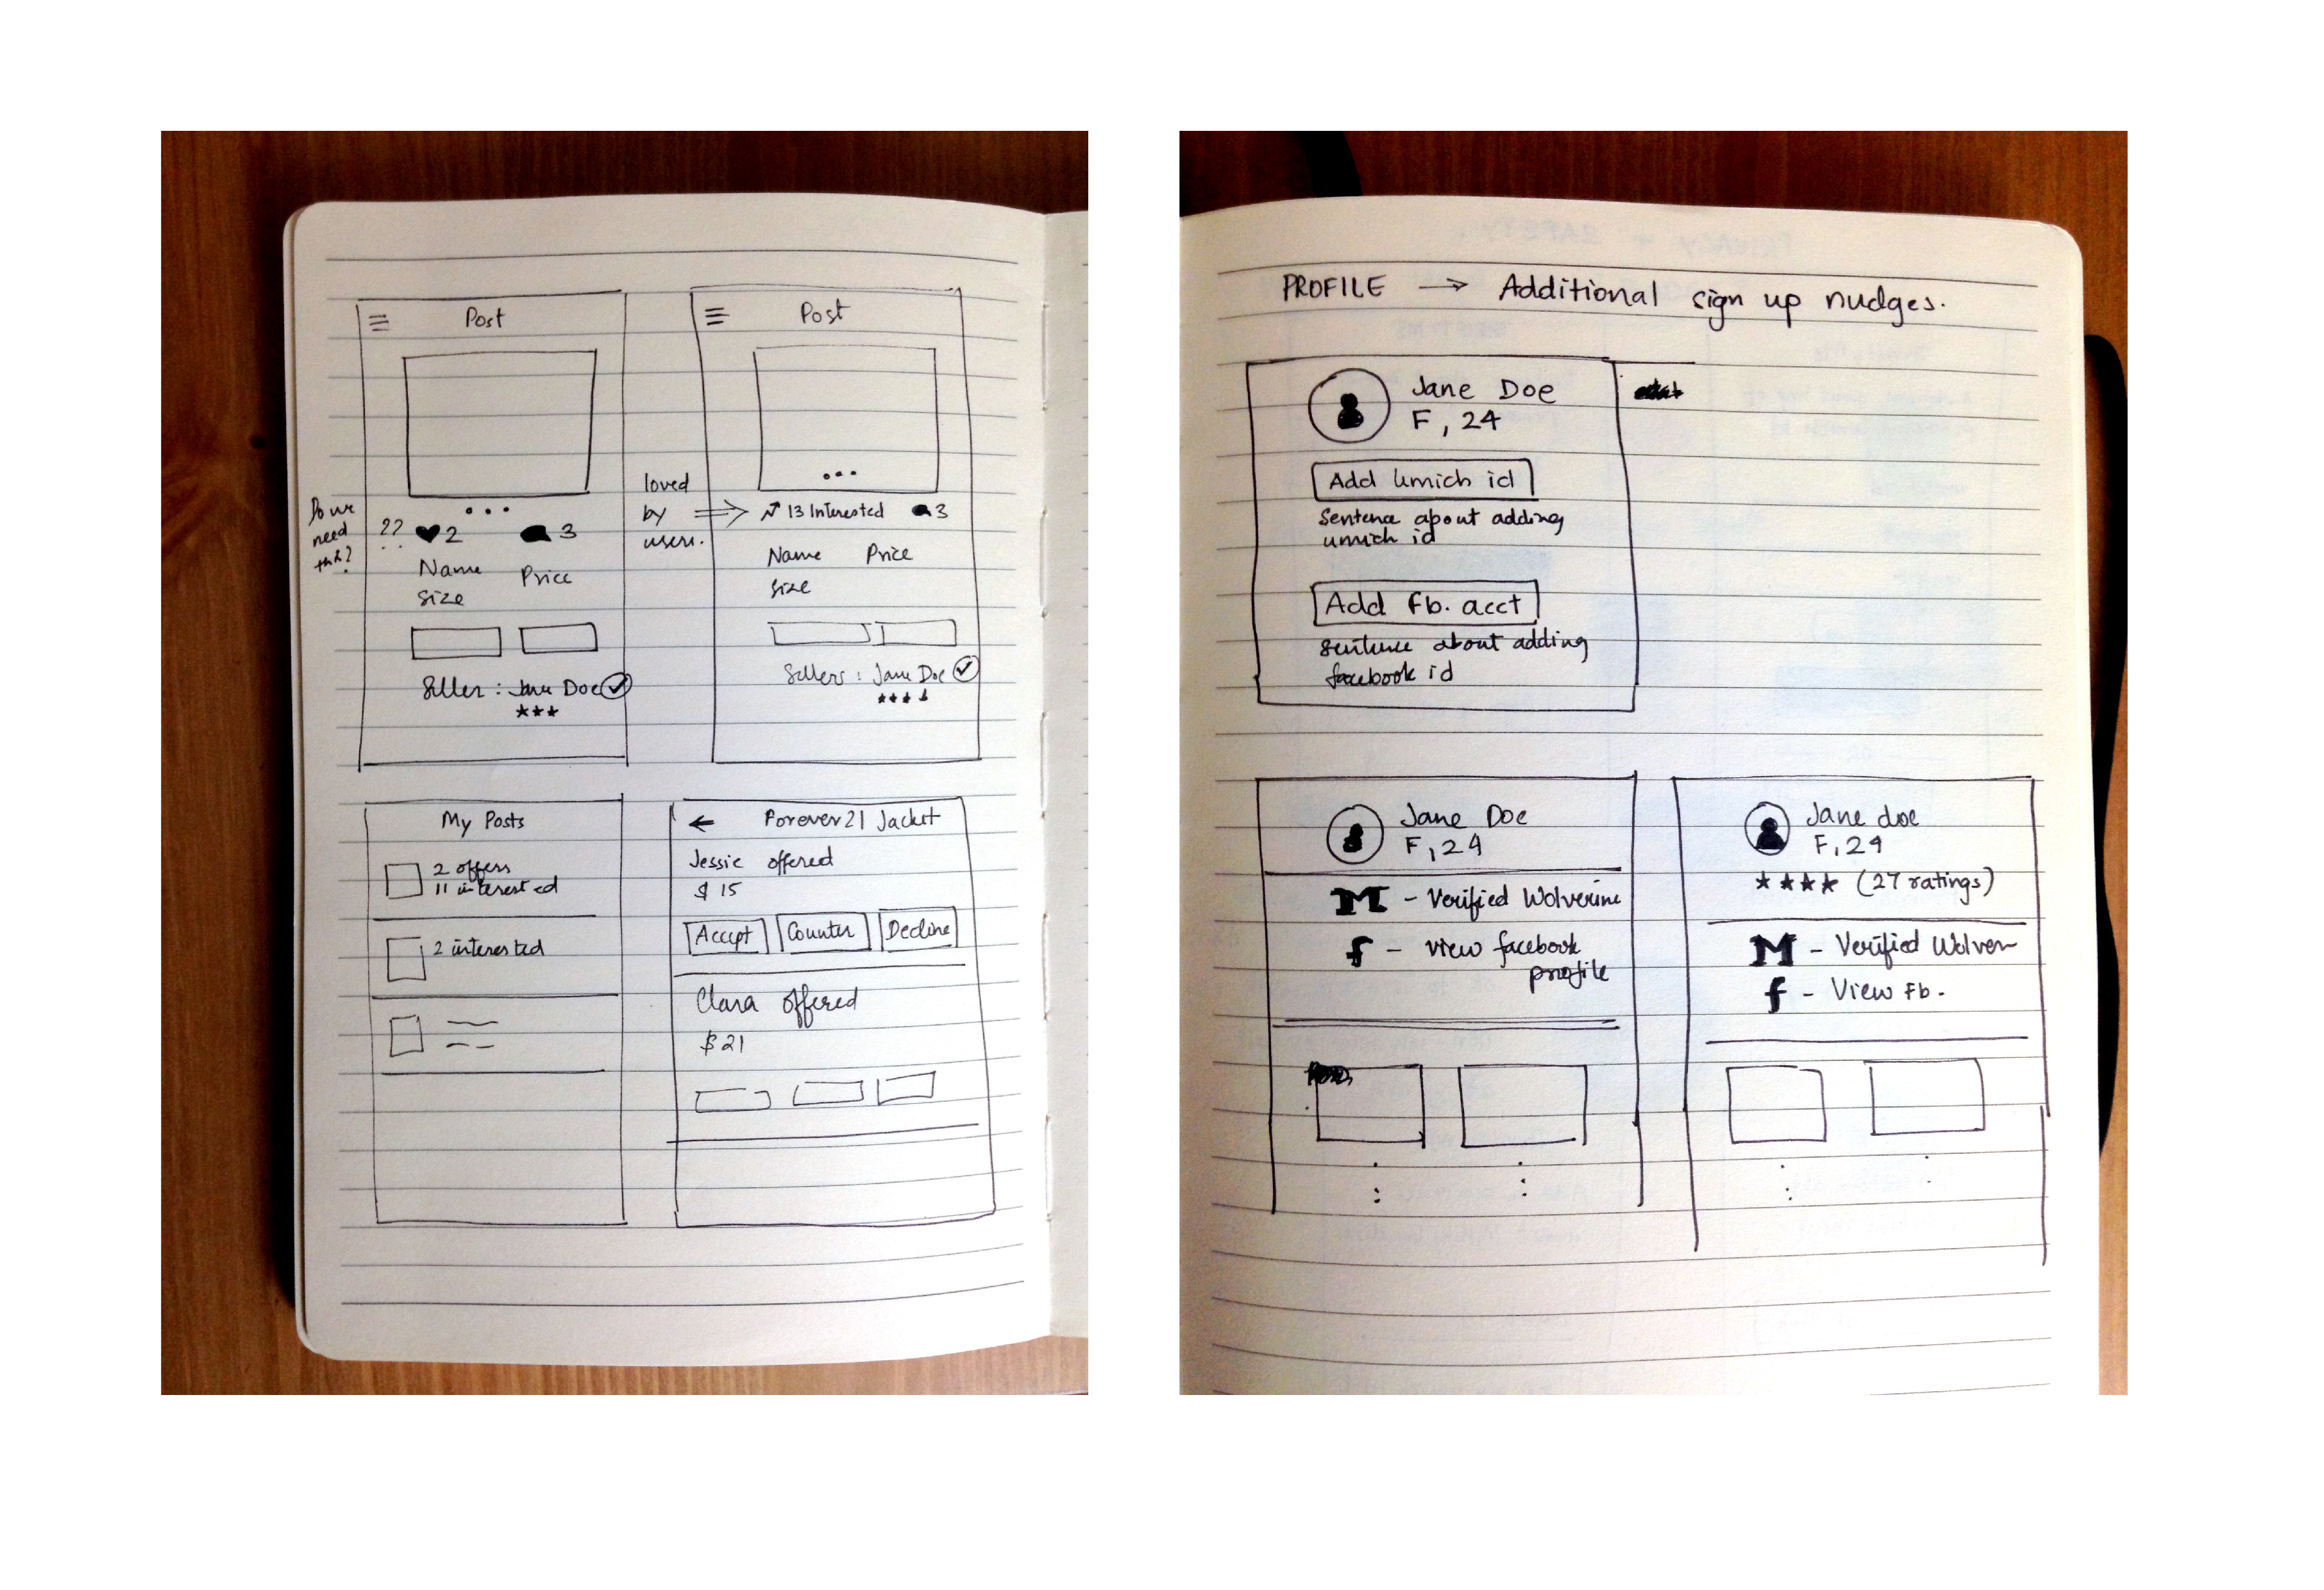 Post
Do we
need
this?
??
2
3
Name Price
Size
Seller : Jane Doe
loved
by
users.
Post
13 Interested 3
Name Price
Size
Sellers : Jane Doe
My Posts
2 offers
11 interested
2 interested
Forever 21 Jacket
Jessie offered
$ 15
Accept Counter Decline
Clara offered
$ 21
PROFILE → Additional sign up nudges.
Jane Doe
F, 24
Add Umich id
Sentence about adding
umich id
Add Fb. acct
sentence about adding
facebook id
Jane Doe
F, 24
M - Verified Wolverine
f - view facebook
profile
Jane doe
F, 24
★★★★ (27 ratings)
M - Verified Wolver
f - View Fb.